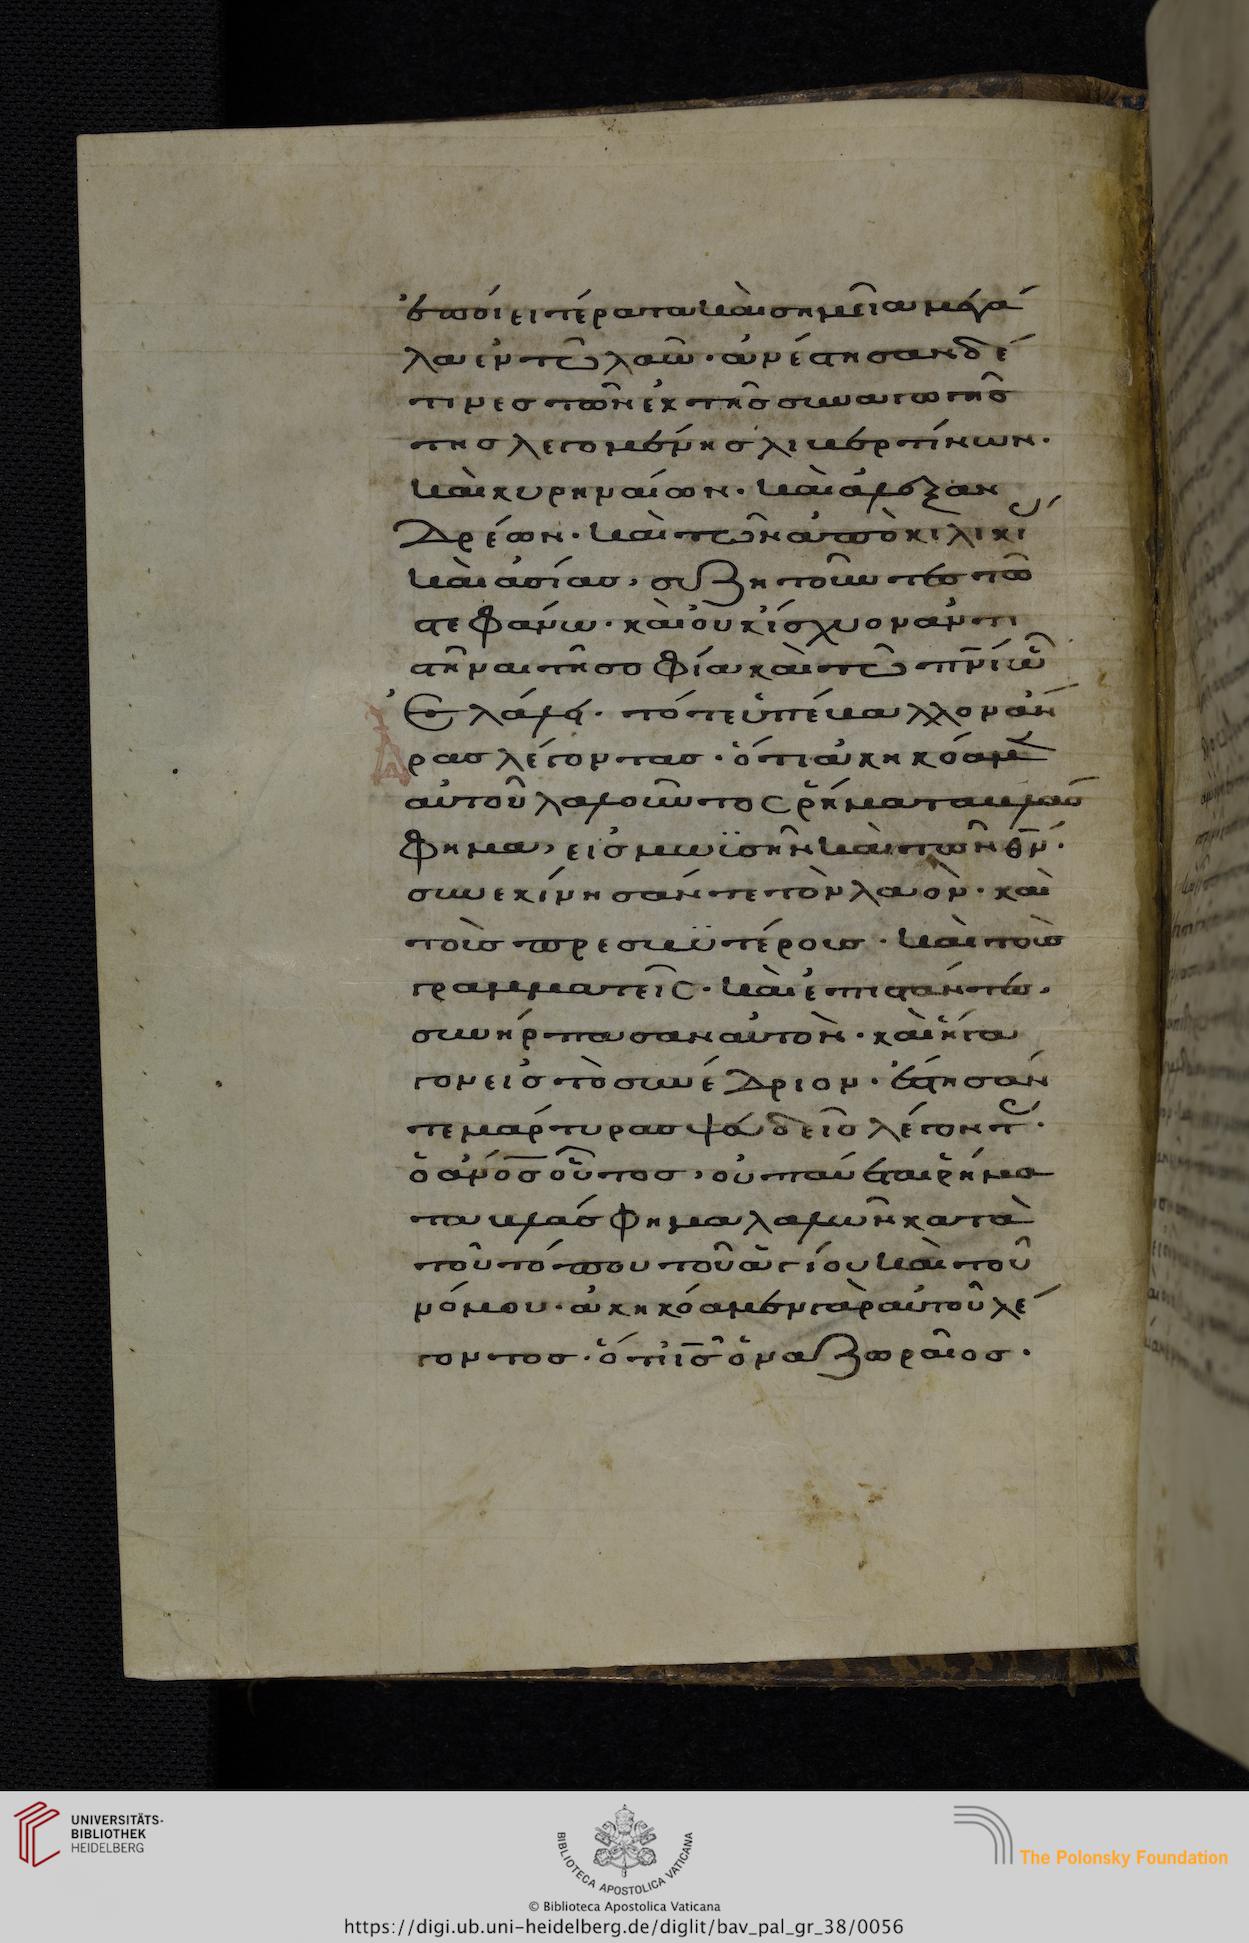 ἐποίει τέρατα καὶ σημεῖα μεγά
λα ἐν τῶ λαῶ · ἀνέστησαν δέ
τινες τῶν ἐκ τῆς συναγωγῆς
τῆς λεγομένης λιβερτίνων ·
καὶ κυρηναίων · καὶ ἀλεξαν
δρέων · καὶ τῶν ἀπὸ κιλικί
καὶ ἀσίας, συζητοῦντες τῶ
στεφάνω · καὶ οὐκ ἴσχυον ἀντι
στῆναι τῆ σοφία καὶ τῶ πνι ὧ
ἐλάλει · τότε ὑπέβαλλον ἄν
ρας λέγοντας · ὅτι ἀκηκόαμεν
αὐτοῦ λαλοῦντος ῥήματα βλασ
φημα, εἰς μωϋσῆν καὶ τὸν θν ·
συνεκίνησάν τε τὸν λαὸν · καὶ
τοὺς πρεσβϋτέρους · καὶ τοὺς
γραμματεῖς · καὶ ἐπιστάντες,
συνήρπασαν αὐτὸν · καὶ ἤγα
γον εἰς τὸ συνέδριον · ἔστησάν
τε μάρτυρας ψευδεῖς λέγοντ ·
ὁ ἀνος οὗτος, οὐ παύεται ῥήμα
τα βλάσφημα λαλῶν κατὰ
τοῦ τόπου τοῦ ἁγίου καὶ τοῦ
νόμου · ἀκηκόαμεν γὰρ αὐτοῦ λέ
γοντος · ὅτι ις ὁ ναζωραῖος ·
UNIVERSITÄTS-
BIBLIOTHEK
HEIDELBERG
BIBLIOTECA APOSTOLICA VATICANA
The Polonsky Foundation
© Biblioteca Apostolica Vaticana
https://digi.ub.uni-heidelberg.de/diglit/bav_pal_gr_38/0056